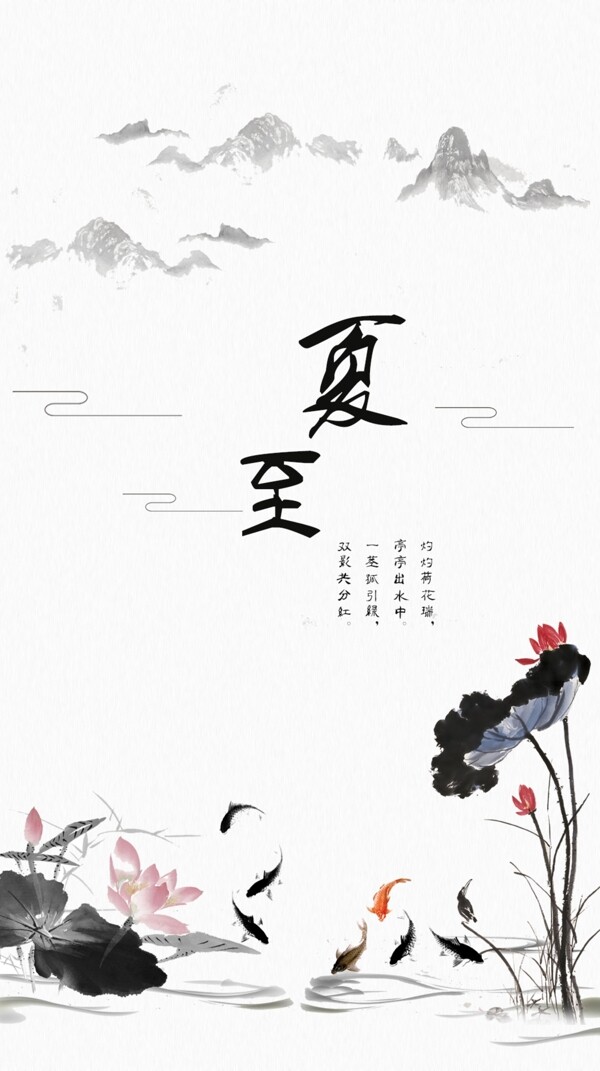 夏至
灼灼荷花瑞，
亭亭出水中。
一茎孤引绿，
双影共分红。